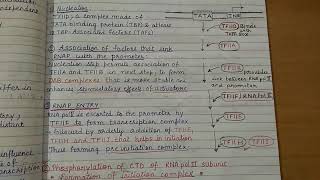 Nucleation
TFIID, a complex made of
TATA-binding protein (TBP) & atleast
TBP-Associated Factors (TAFs)
② Association of factors that link
RNAP with the promoter:
Nucleation step permits association of
TFIIA and TFIIB in next step to form
DAB complexes that is more stable and
enhance stimulatory effect of activators
③ RNAP ENTRY:
RNA pol II is escorted to the promoter by
TFIIF to form transcription complex
followed by orderly addition of TFIIE,
TFIIH and TFIIJ that helps in initiation
Thus forming pre-initiation complex
Phosphorylation of CTD of RNA pol II subunit
Formation of initiation complex
TATA
INR
TFIID
Binds
with
TATA box
TFIIA
TFIIB
provides
link between RNA pol II
and promoter
TFIIF
RNA pol II
TFIIE
TFIIH
TFIIJ
ependent
ffer in
ary,
distant
influence
of
transcription